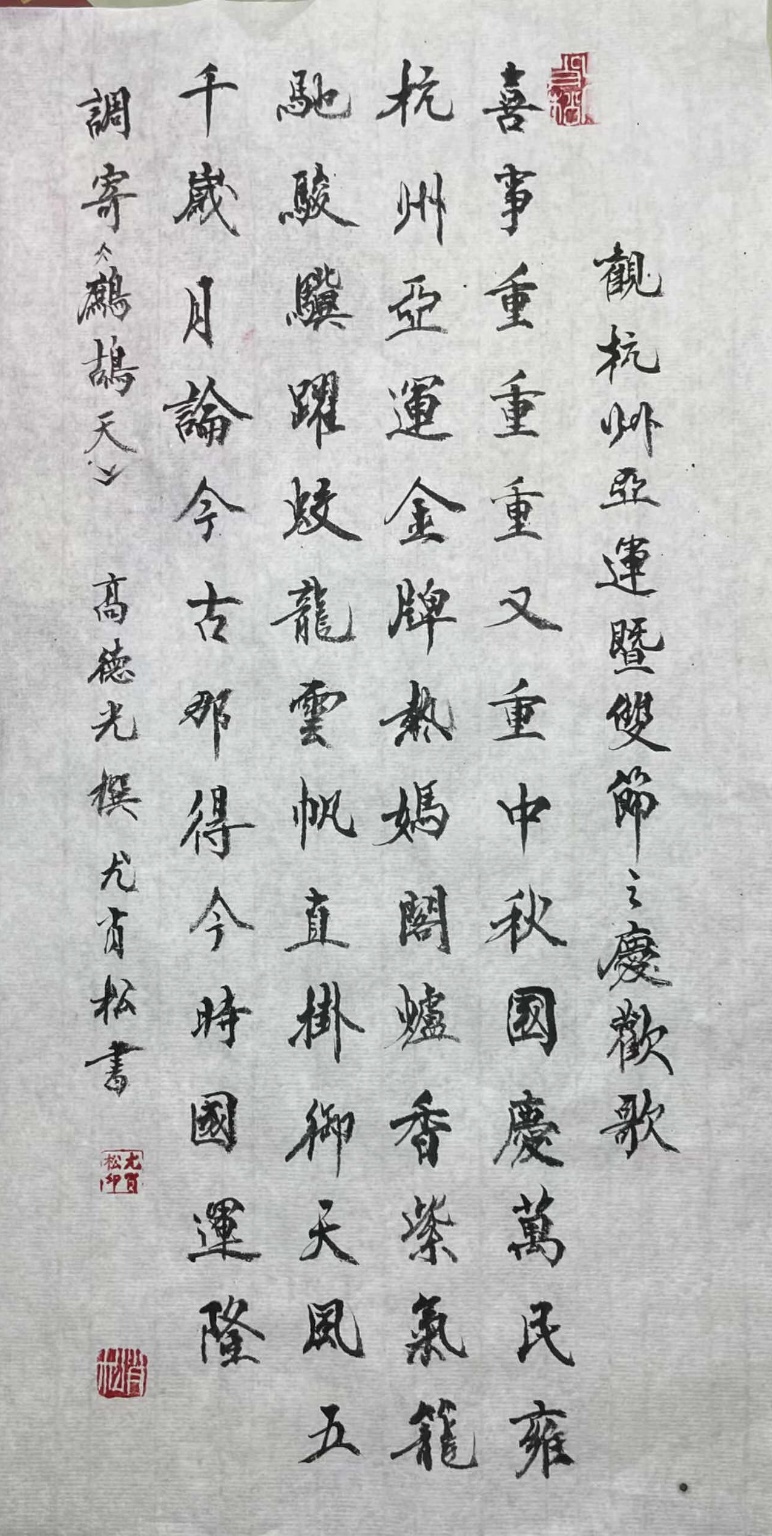 觀杭州亞運暨雙節之慶歡歌
喜事重重重又重中秋國慶萬民雍
杭州亞運金牌熱媽閣爐香紫氣籠
馳駿驥躍蛟龍雲帆直掛御天風五
千歲月論今古那得今時國運隆
調寄《鷓鴣天》 高德光撰尤肖松書
尤肖松印
肖松